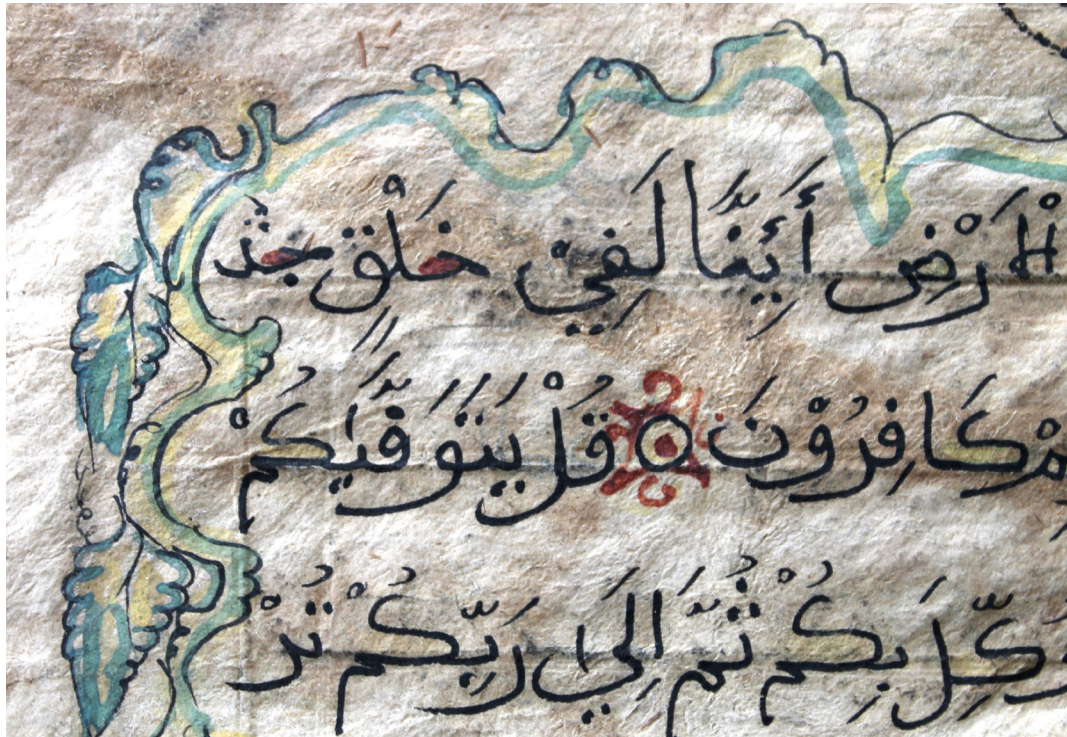 الْاَرْضِ أَئِنَّا لَفِيْ خَلْقٍ جَدِ
كَافِرُوْنَ قُلْ يَتَوَفّٰيكُمْ
وُكِّلَ بِكُمْ ثُمَّ اِلٰي رَبِّكُمْ تُرْ